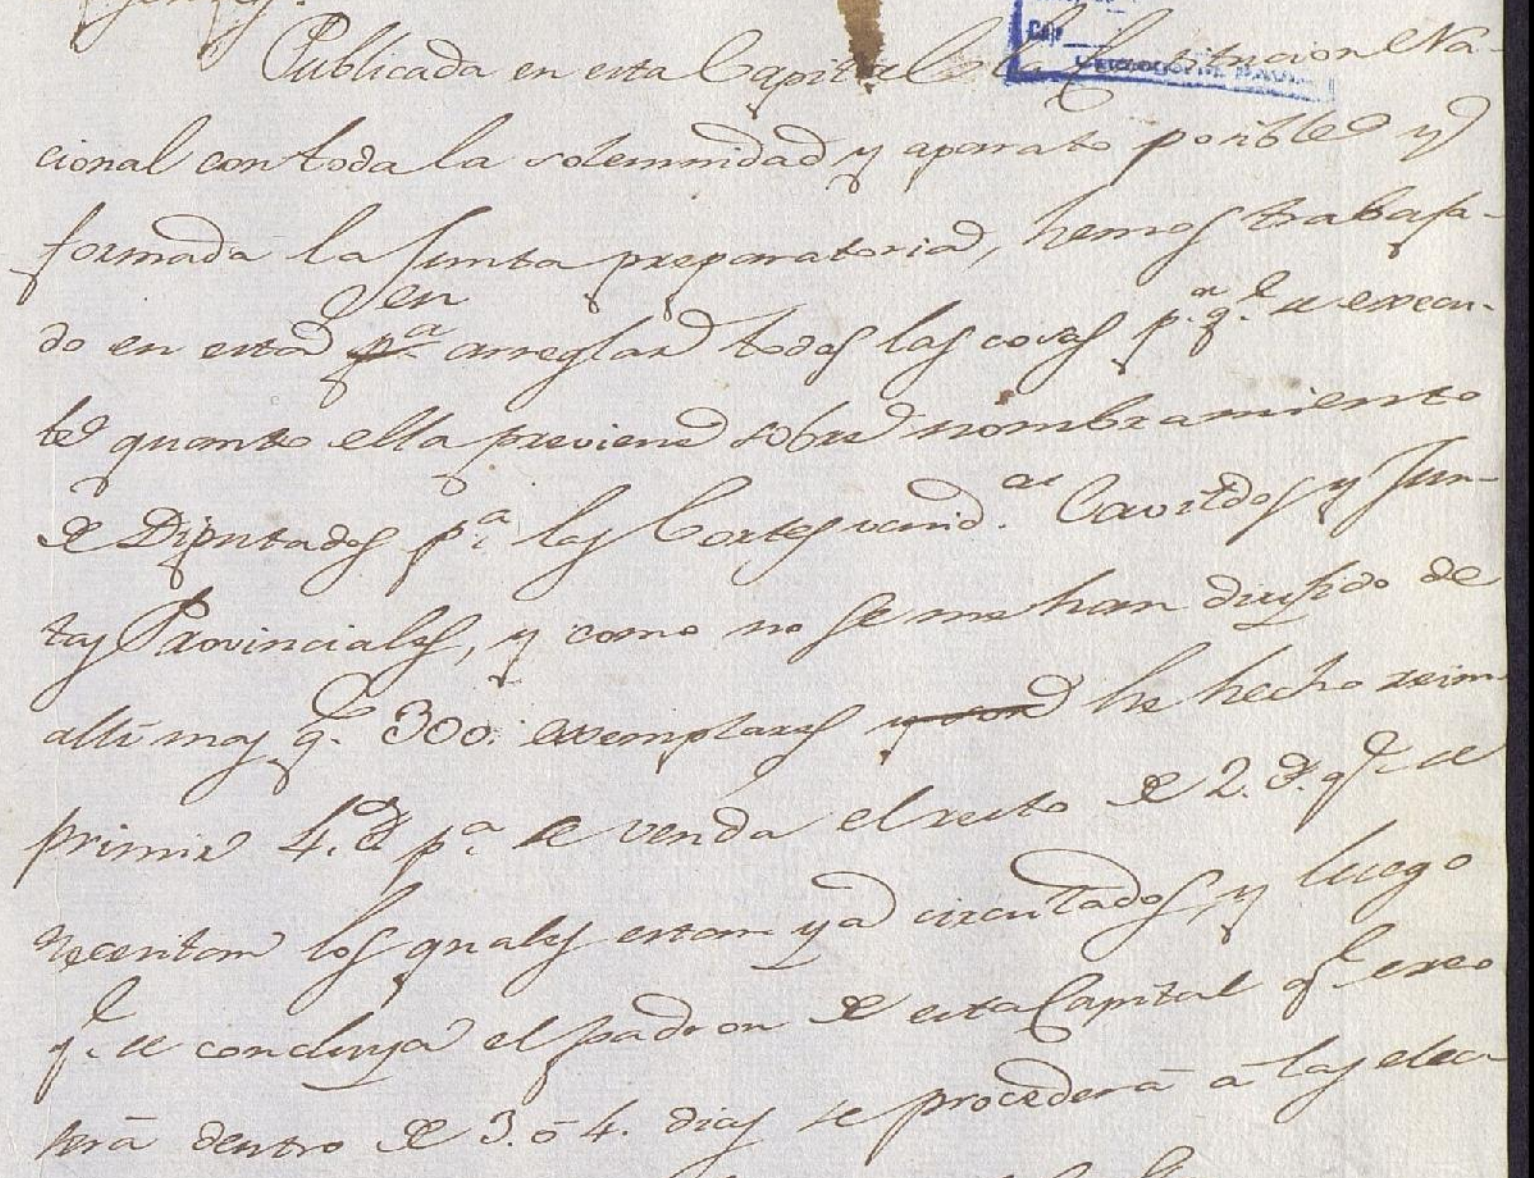 Publicada en esta Capital la Constitucion Na-
cional con toda la solemnidad y aparato posible y
formada la Junta preparatoria, hemos trabaja-
en
do en esta pª arreglar todas las cosas p.ª q.e se execu-
te quanto ella previene sobre nombramiento
de Diputados p.ª las Cortes venid.as Cavildos y Jun-
tas Provinciales, y como no se me han dirijido de
allí mas q.e 300. exemplares y son he hecho reim-
primir 4.d p.ª se venda el resto de 2.d q.e se
necesitan los quales estan ya circulados, y luego
q.e se concluya el padron de esta Capital q.e creo
será dentro de 3. ó 4. dias se procederá á las elec-